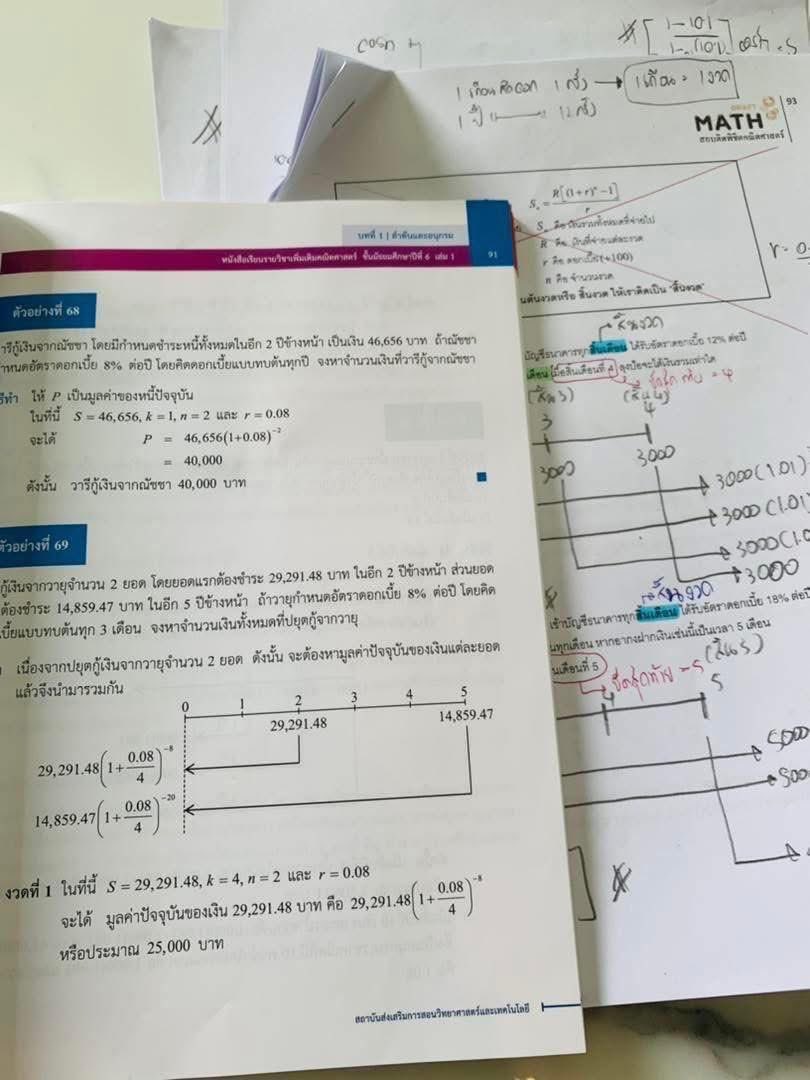 บทที่ 1 | ลำดับและอนุกรม
หนังสือเรียนรายวิชาเพิ่มเติมคณิตศาสตร์ ชั้นมัธยมศึกษาปีที่ 6 เล่ม 1 91
ตัวอย่างที่ 68
วารีกู้เงินจากณัชชา โดยมีกำหนดชำระหนี้ทั้งหมดในอีก 2 ปีข้างหน้า เป็นเงิน 46,656 บาท ถ้าณัชชา
กำหนดอัตราดอกเบี้ย 8% ต่อปี โดยคิดดอกเบี้ยแบบทบต้นทุกปี จงหาจำนวนเงินที่วารีกู้จากณัชชา
ให้ P เป็นมูลค่าของหนี้ปัจจุบัน
ในที่นี้ S = 46,656, k = 1, n = 2 และ r = 0.08
จะได้ P = 46,656(1+0.08)⁻²
= 40,000
ดังนั้น วารีกู้เงินจากณัชชา 40,000 บาท
ตัวอย่างที่ 69
กู้เงินจากวายุจำนวน 2 ยอด โดยยอดแรกต้องชำระ 29,291.48 บาท ในอีก 2 ปีข้างหน้า ส่วนยอด
ต้องชำระ 14,859.47 บาท ในอีก 5 ปีข้างหน้า ถ้าวายุกำหนดอัตราดอกเบี้ย 8% ต่อปี โดยคิด
เบี้ยแบบทบต้นทุก 3 เดือน จงหาจำนวนเงินทั้งหมดที่ปยุตกู้จากวายุ
เนื่องจากปยุตกู้เงินจากวายุจำนวน 2 ยอด ดังนั้น จะต้องหามูลค่าปัจจุบันของเงินแต่ละยอด
แล้วจึงนำมารวมกัน
0 1 2 3 4 5
29,291.48 14,859.47
29,291.48(1+0.08/4)⁻⁸
14,859.47(1+0.08/4)⁻²⁰
งวดที่ 1 ในที่นี้ S = 29,291.48, k = 4, n = 2 และ r = 0.08
จะได้ มูลค่าปัจจุบันของเงิน 29,291.48 บาท คือ 29,291.48(1+0.08/4)⁻⁸
หรือประมาณ 25,000 บาท
สถาบันส่งเสริมการสอนวิทยาศาสตร์และเทคโนโลยี
1 เดือน = 1 งวด
1 ปี 12 ครั้ง
MATH 93
สอบติดพิชิตคณิตศาสตร์
Sₙ = R[(1+r)ⁿ −1]/r
Sₙ คือ เงินรวมทั้งหมดที่จ่ายไป
R คือ เงินที่จ่ายแต่ละงวด
r คือ ดอกเบี้ย(÷100)
n คือ จำนวนงวด
ต้นงวดหรือ สิ้นงวด ให้เราคิดเป็น "สิ้นงวด"
สิ้นงวด
บัญชีธนาคารทุกสิ้นเดือน ได้รับอัตราดอกเบี้ย 12% ต่อปี
เดือน เมื่อสิ้นเดือนที่ 4
(สิ้น 3) (สิ้น 4)
3 4
3000 3000
3000(1.01)
3000(1.01)
3000(1.0
3000
สิ้นงวด
เข้าบัญชีธนาคารทุกสิ้นเดือน ได้รับอัตราดอกเบี้ย 18% ต่อปี
นทุกเดือน หากอากงฝากเงินเช่นนี้เป็นเวลา 5 เดือน
นเดือนที่ 5
(สิ้น 5)
4 5
5000